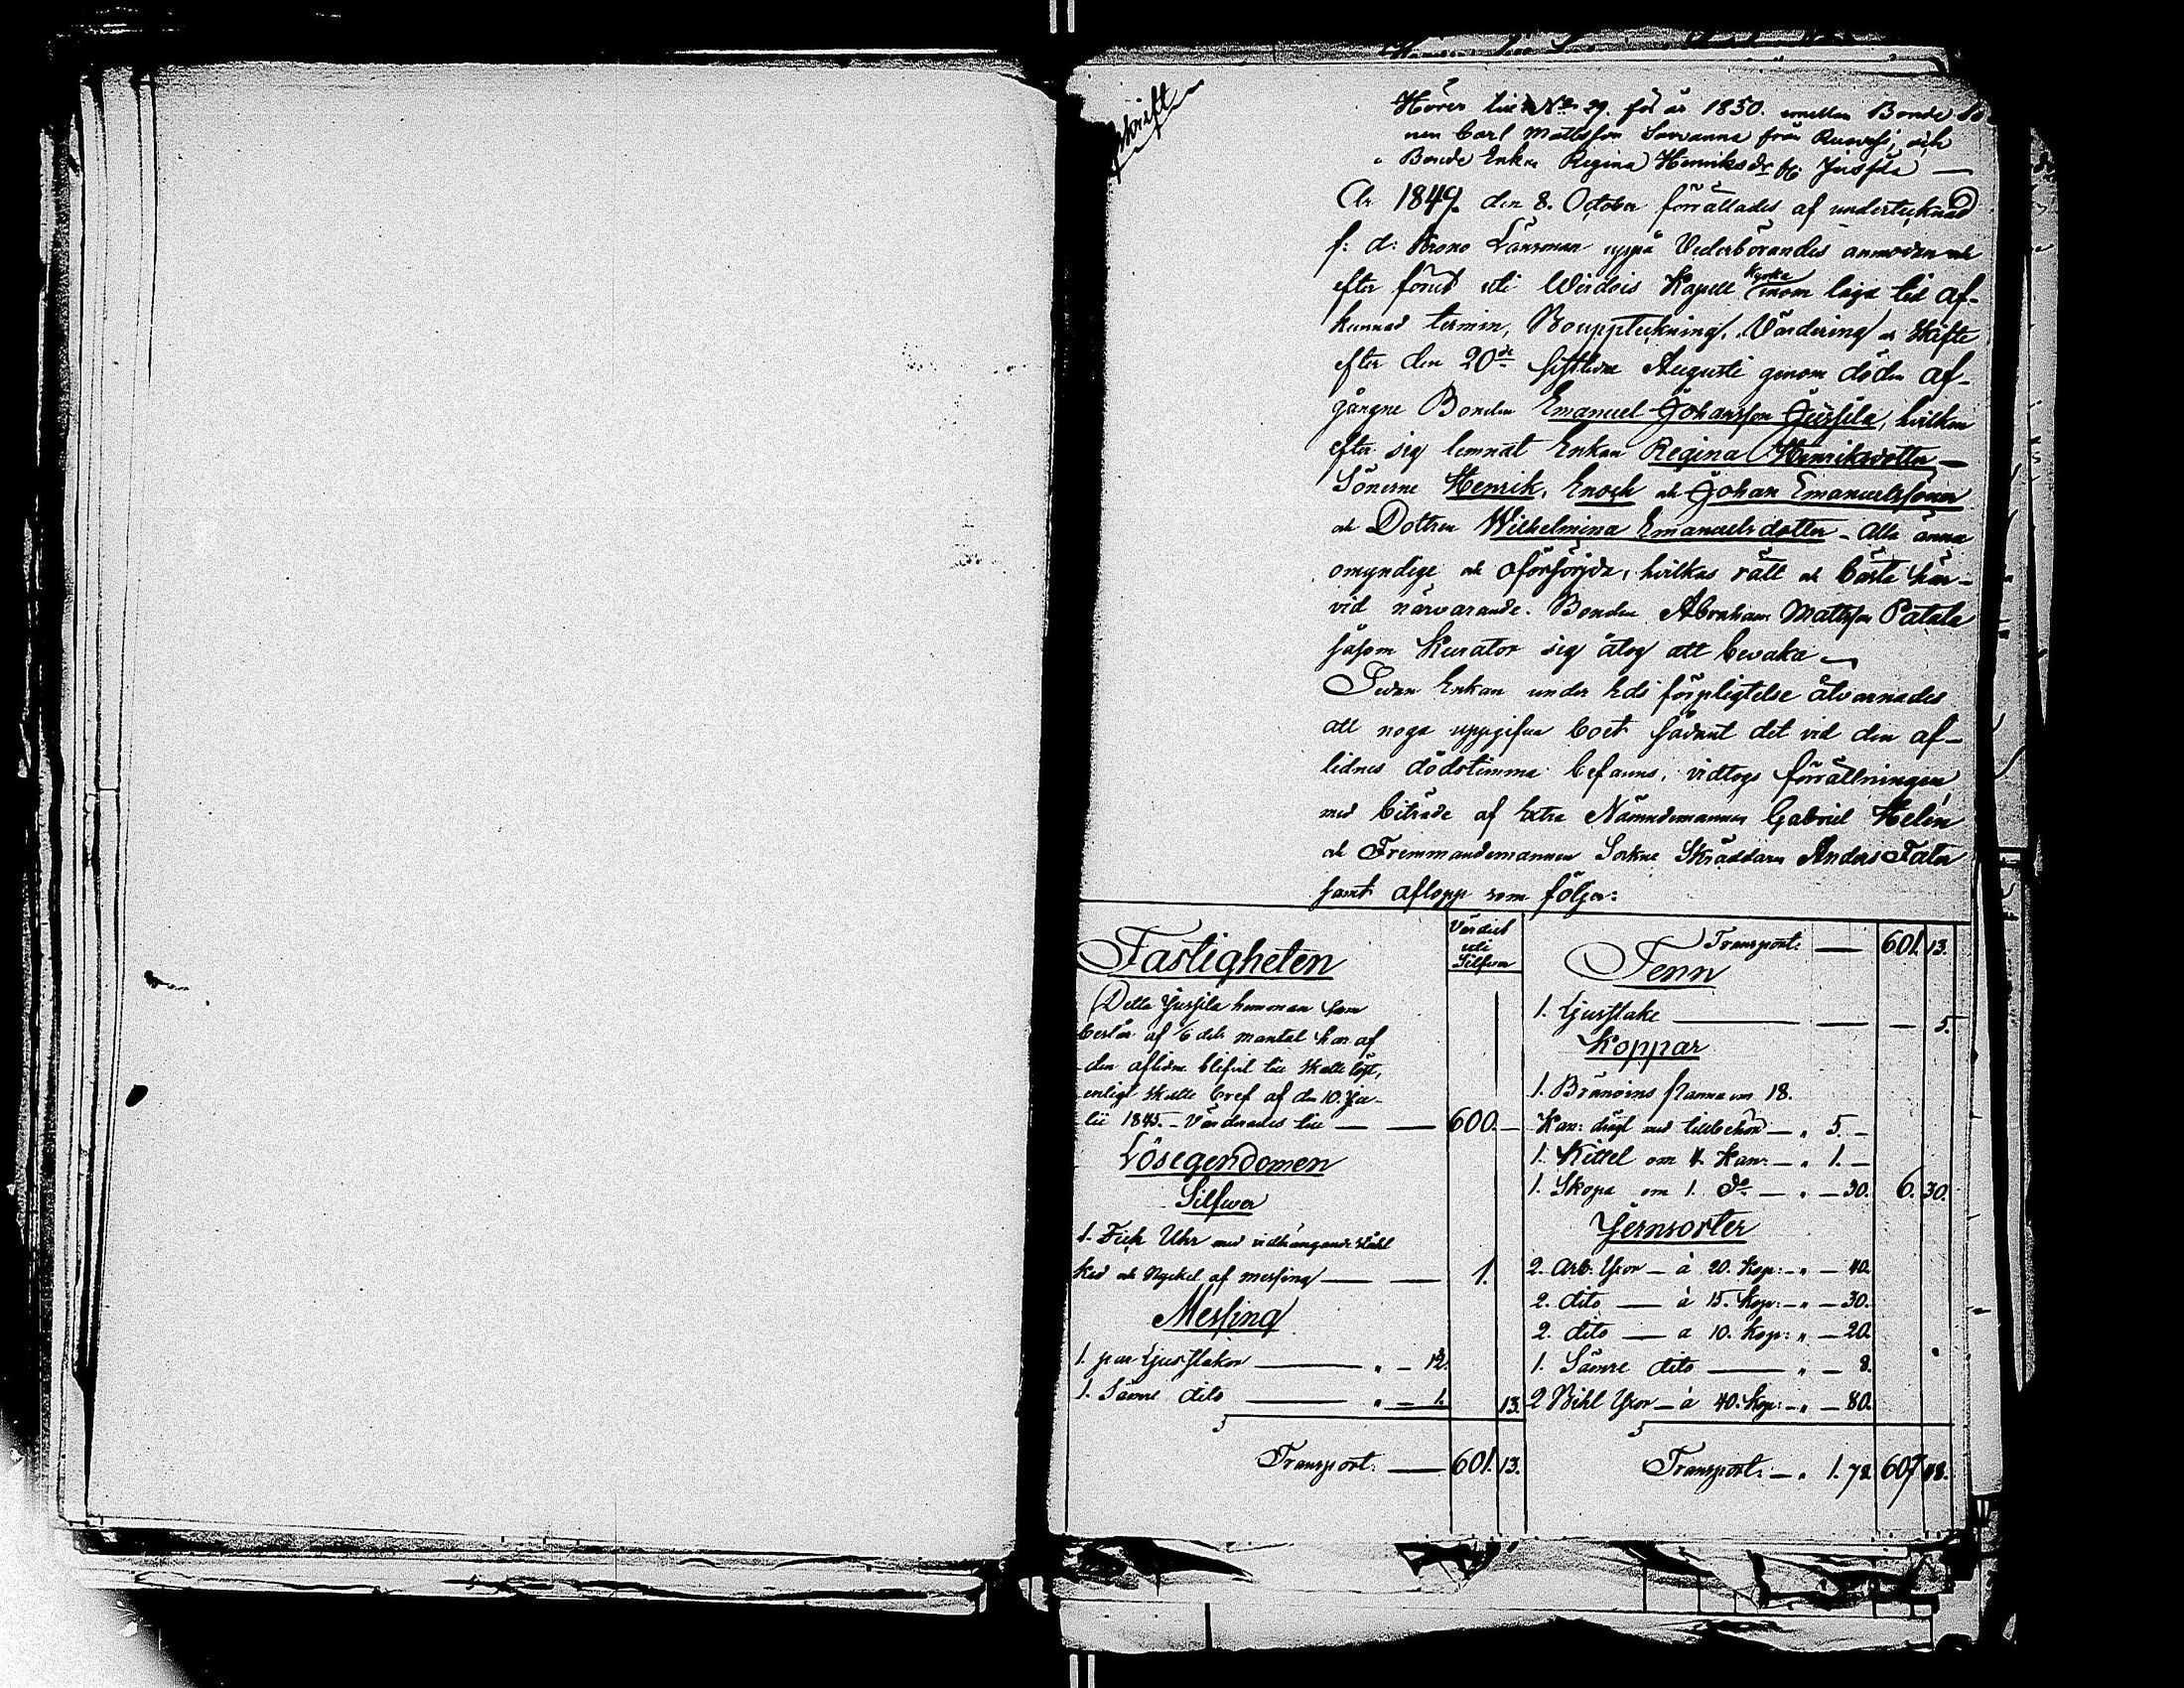 skrift
Hörer till No 29. för år 1850. emellan Bonde So
nen Carl Mattsson Savanna från Ruovesi, och
Bonde Enkn Regina Henriksdr fr. Jussila
År 1849. den 8. October förrättades af undertecknad
f: d: Krono Länsman uppå Vederbörandes anmodan och
efter förut uti Wirdois Kapell Kyrka inom laga tid af-
kunnad termin, Bouppteckning, Värdering och Skifte
efter den 20de sistledne Augusti genom döden af-
gångne Bonden Emanuel Johansson Jussila, hvilken
efter sig lemnat Enkan Regina Henriksdotter
Sönerne Henrik, Enoch och Johan Emanuelssöner
och Dottren Wilhelmina Emanuelsdotter - Alla ännu
omyndige och oförsörjda, hvilkas rätt och bästa här-
vid närvarande Bonden Abraham Mattsson Patala
såsom Kurator sig åtog att bevaka
Sedan Enkan under Eds förpligtelse åtvarnades
att noga uppgifva boet sådant det vid den af-
lidnes dödstimma befanns, vidtogs förrättningen
med biträde af Extra Nämndemannen Gabriel Helén
och Fremmandemannen Sockne Skräddaren Anders Fater
samt aflopp som följer:
Fastigheten
Värdert
uti
Silfver
Detta Jussila hemman som
består af 1/6 dels mantal har af
den aflidne blifvit till Skatte löst,
enligt Skatte bref af den 10. Ju-
lii 1845. - Värderades till 600.
Lösegendomen
Silfver
1. Fick Uhr med vidhängande stål
ked och Nyckel af messing 1.
Messing
1. par Ljusstakor " - 12.
1. Sämre dito " - 1. 13.
Transport: 601. 13.
Transport: 601. 13.
Tenn
1. Ljusstake 5.
Koppar
1. Bränvins panna om 18.
Kan: drägt med tillbehör " 5. -
1. Kittel om 4. Kan: - " 1. -
1. Skopa om 1. do " - 30. 6. 30.
Jernsorter
2. Arb: Yxor - à 20. Kop: - " - 40.
2. dito à 15. Kop: - " - 30.
2. dito à 10. Kop: " - 20.
1. Sämre dito " - 8.
2 Bihl Yxor - à 40. Kop: - " - 80.
Transport: - " 1. 78. 607 48.